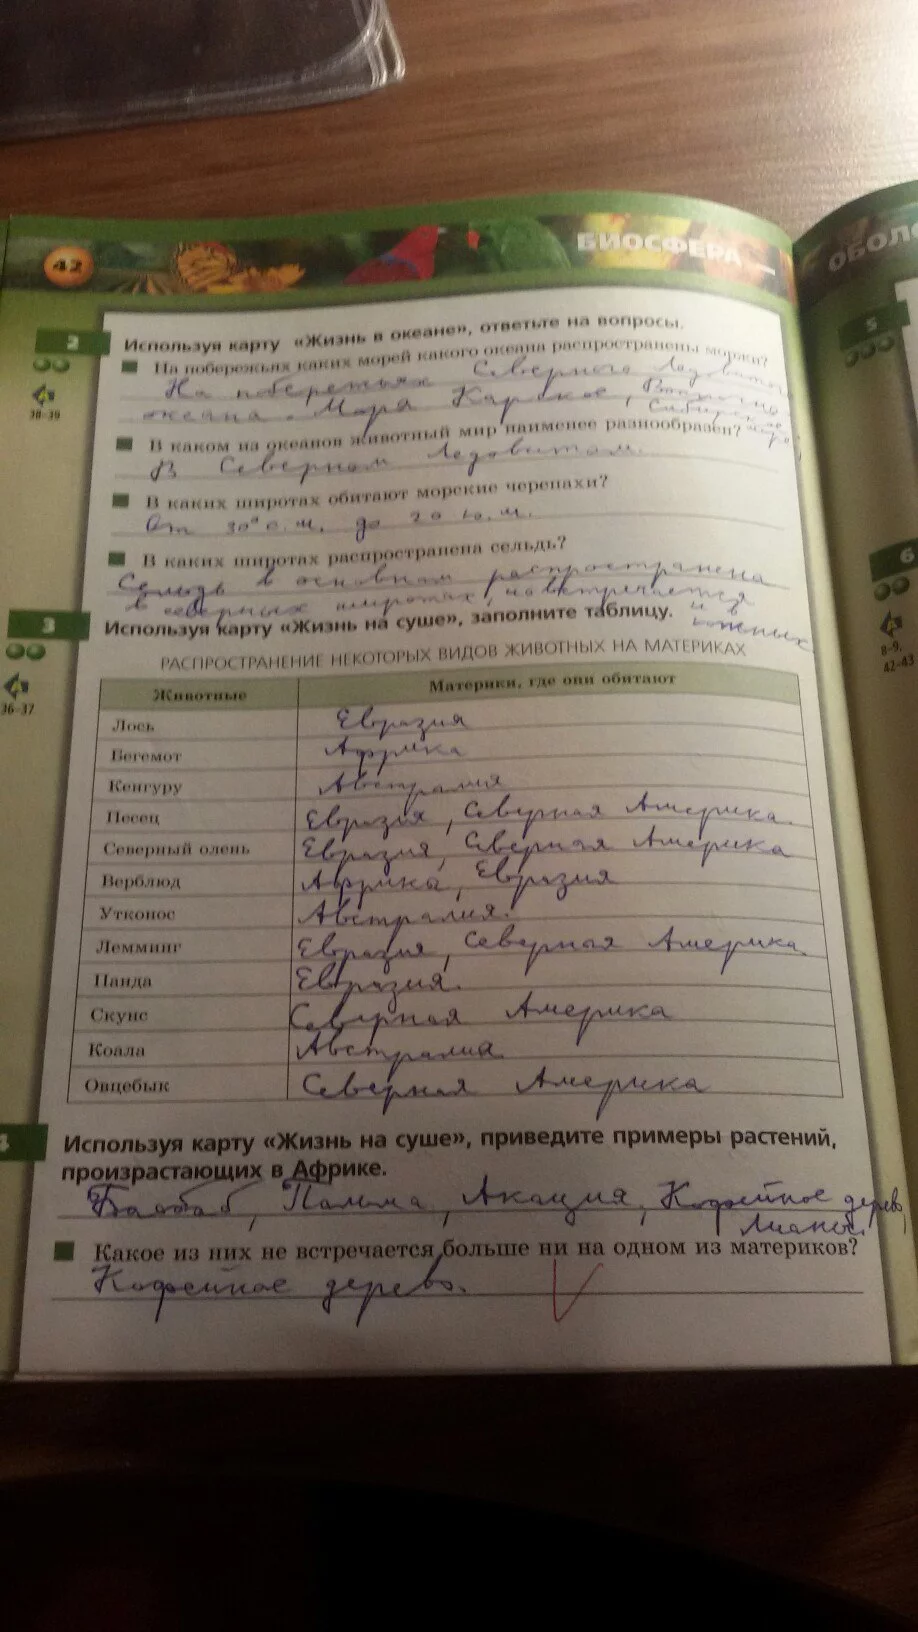 42
БИОСФЕРА —
ОБОЛО
2
Используя карту «Жизнь в океане», ответьте на вопросы.
На побережьях каких морей какого океана распространены моржи?
На побережьях Северного Ледовитого
океана. Моря Карское, Восточно
Сибирское море
38–39
В каком из океанов животный мир наименее разнообразен?
В Северном Ледовитом.
В каких широтах обитают морские черепахи?
От 30° с.ш. до 20 ю.ш.
В каких широтах распространена сельдь?
Сельдь в основном распространена
в северных широтах, но встречается
и в южных
3
Используя карту «Жизнь на суше», заполните таблицу.
36–37
РАСПРОСТРАНЕНИЕ НЕКОТОРЫХ ВИДОВ ЖИВОТНЫХ НА МАТЕРИКАХ
Животные Материки, где они обитают
Лось Евразия
Бегемот Африка
Кенгуру Австралия
Песец Евразия, Северная Америка.
Северный олень Евразия, Северная Америка
Верблюд Африка, Евразия
Утконос Австралия.
Лемминг Евразия, Северная Америка
Панда Евразия.
Скунс Северная Америка
Коала Австралия.
Овцебык Северная Америка
4
Используя карту «Жизнь на суше», приведите примеры растений,
произрастающих в Африке.
Баобаб, Пальма, Акация, Кофейное дерево,
Лианы.
Какое из них не встречается больше ни на одном из материков?
Кофейное дерево.
5
6
8–9,
42–43